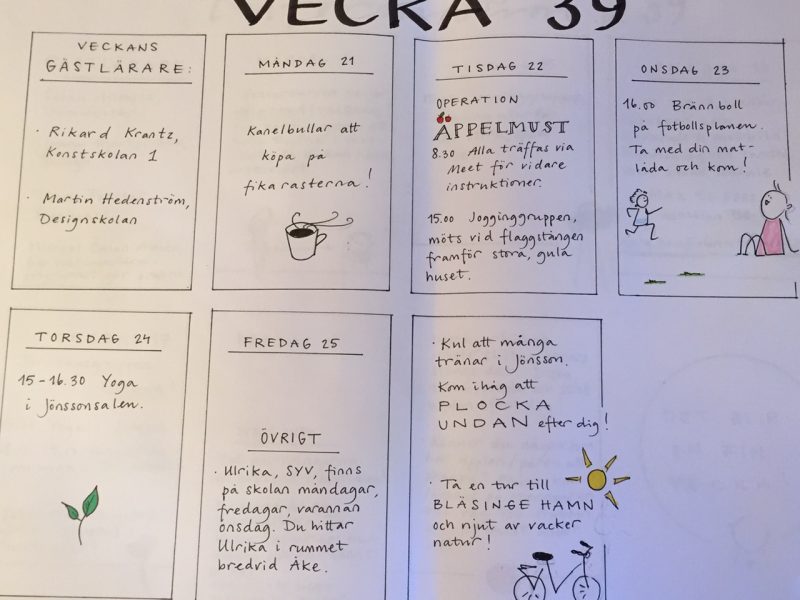 VECKA 39
VECKANS
GÄSTLÄRARE:
· Rikard Krantz,
Konstskolan 1
· Martin Hedenström,
Designskolan
MÅNDAG 21
Kanelbullar att
köpa på
fikarasterna!
TISDAG 22
OPERATION
ÄPPELMUST
8.30 Alla träffas via
Meet för vidare
instruktioner.
15.00 Jogginggruppen,
möts vid flaggstången
framför stora, gula
huset.
ONSDAG 23
16.00 Brännboll
på fotbollsplanen.
Ta med din mat-
låda och kom!
TORSDAG 24
15-16.30 Yoga
i Jönssonsalen.
FREDAG 25
ÖVRIGT
· Ulrika, SYV, finns
på skolan måndagar,
fredagar, varannan
onsdag. Du hittar
Ulrika i rummet
bredvid Åke.
· Kul att många
tränar i Jönsson.
Kom ihåg att
PLOCKA
UNDAN efter dig!
· Ta en tur till
BLÄSINGE HAMN
och njut av vacker
natur!